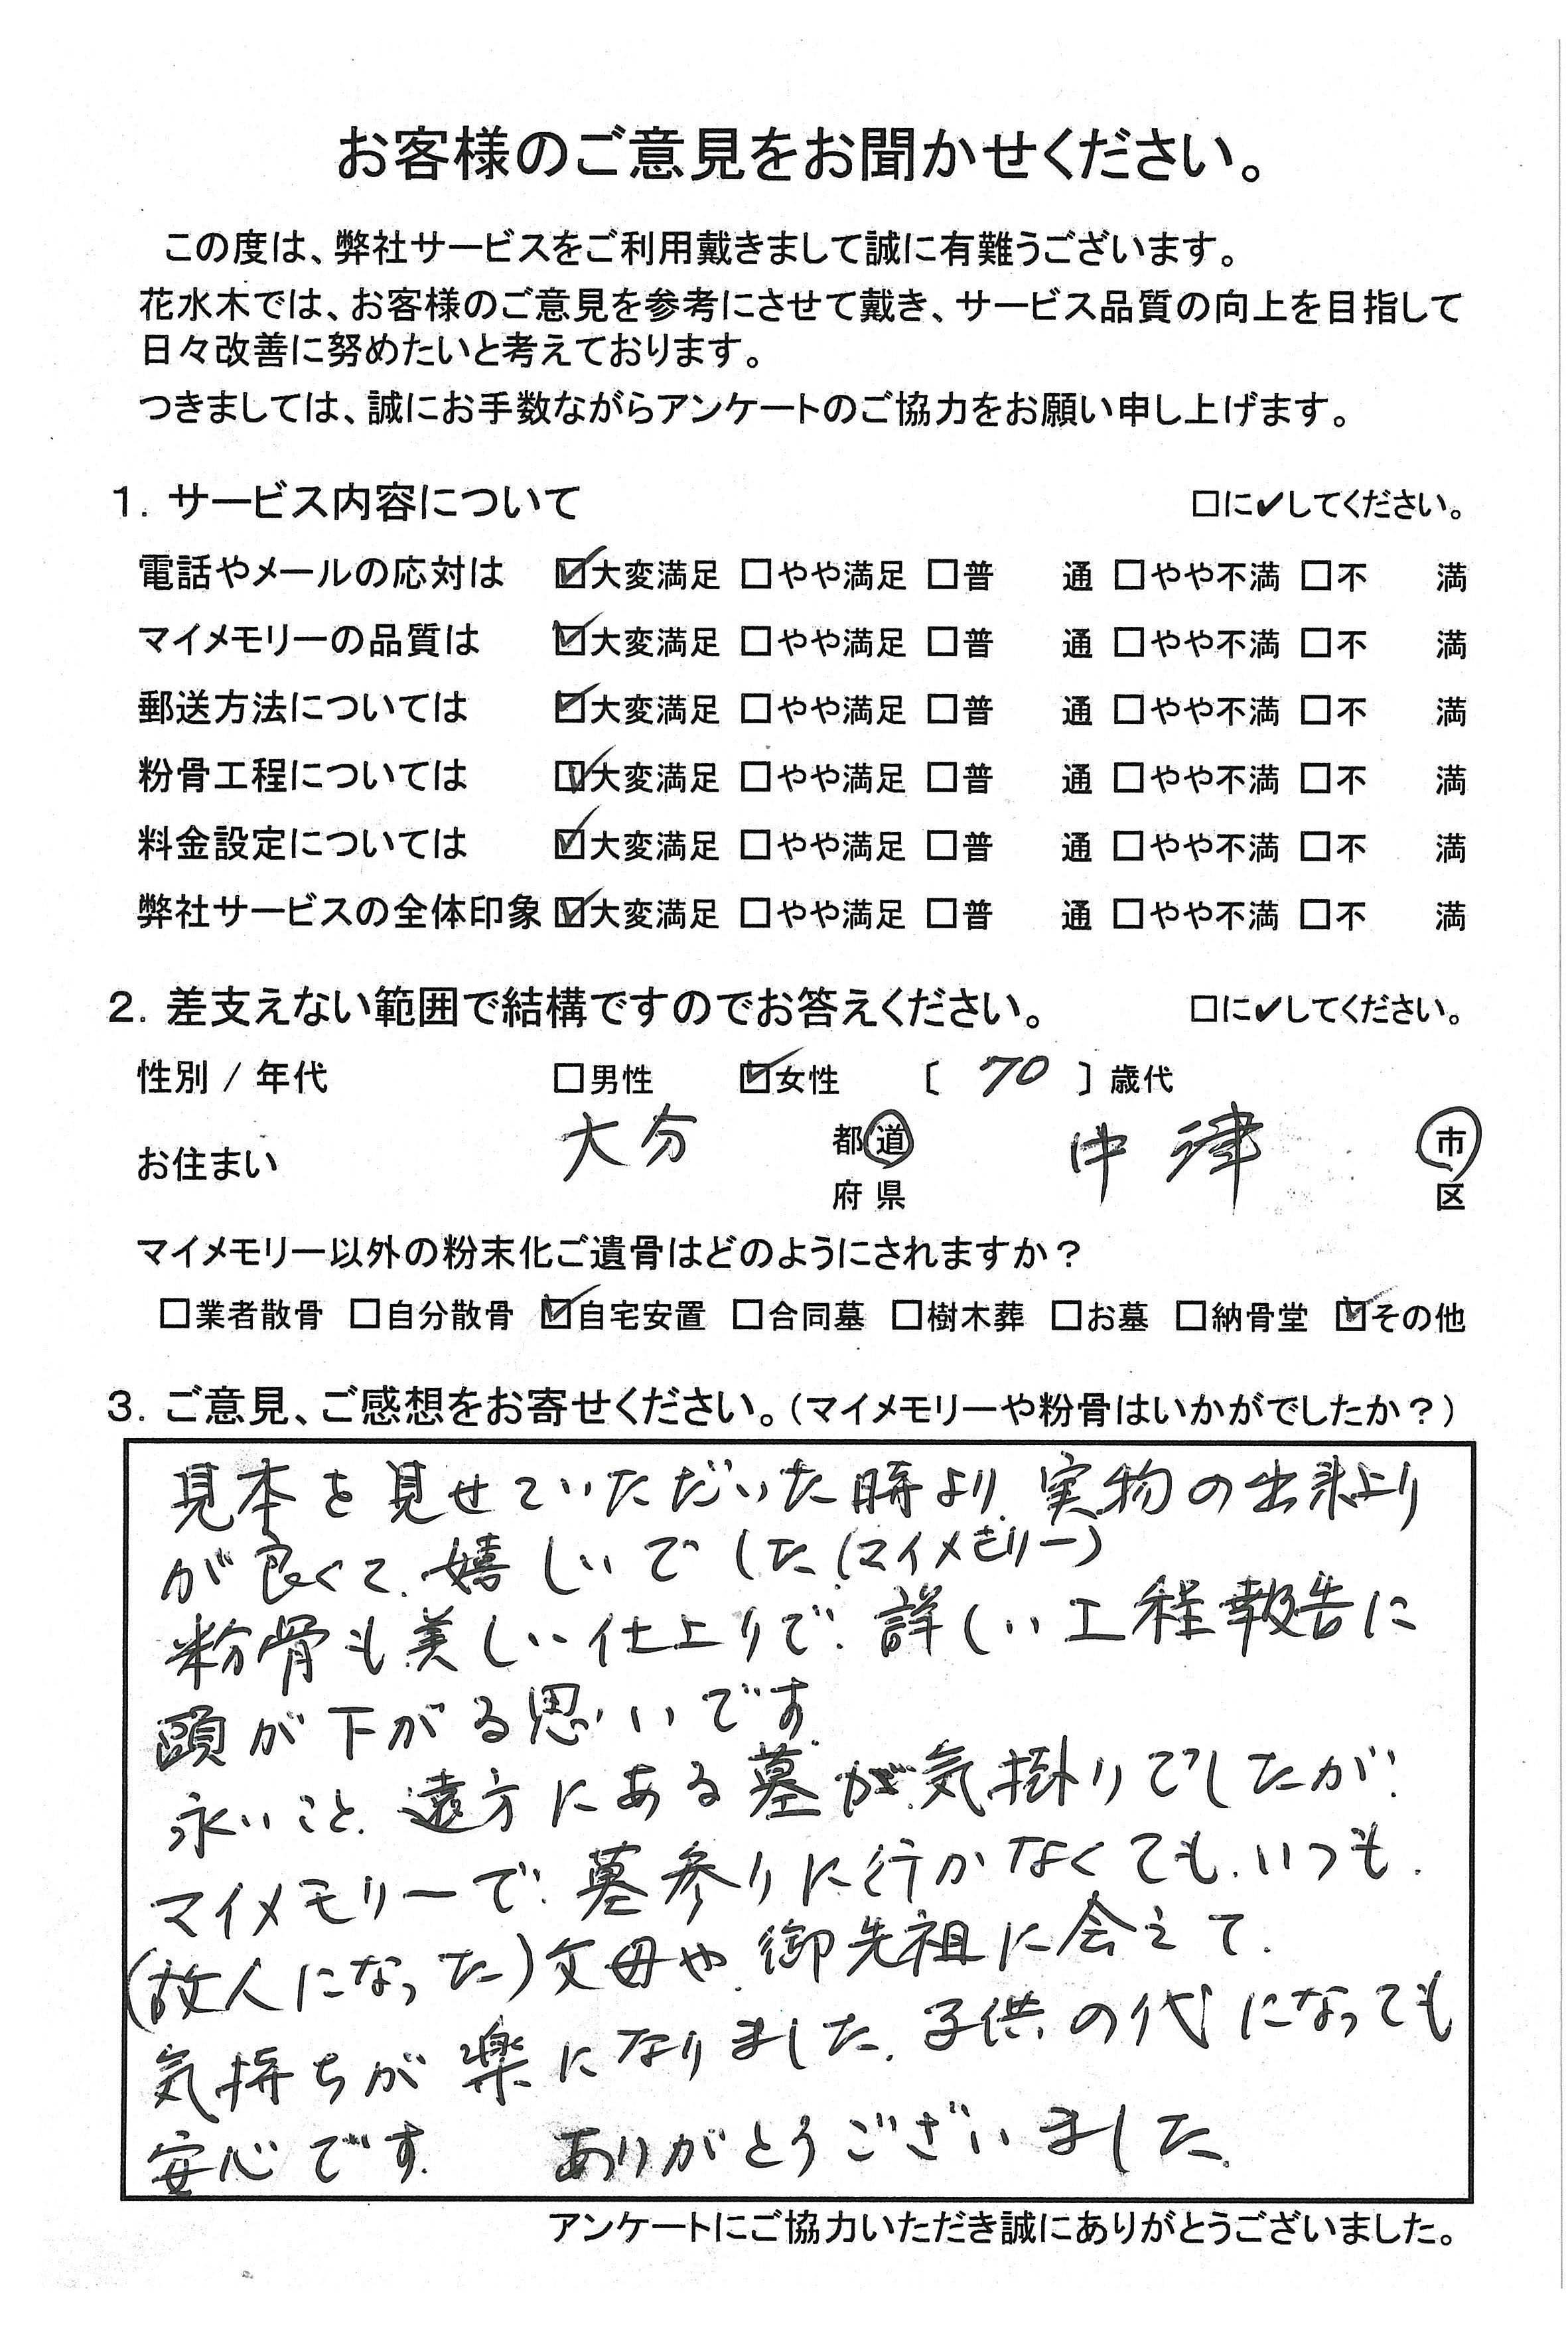 お客様のご意見をお聞かせください。
この度は、弊社サービスをご利用戴きまして誠に有難うございます。
花水木では、お客様のご意見を参考にさせて戴き、サービス品質の向上を目指して
日々改善に努めたいと考えております。
つきましては、誠にお手数ながらアンケートのご協力をお願い申し上げます。
1. サービス内容について □に✔してください。
電話やメールの応対は ☑大変満足 □やや満足 □普 通 □やや不満 □不 満
マイメモリーの品質は ☑大変満足 □やや満足 □普 通 □やや不満 □不 満
郵送方法については ☑大変満足 □やや満足 □普 通 □やや不満 □不 満
粉骨工程については ☑大変満足 □やや満足 □普 通 □やや不満 □不 満
料金設定については ☑大変満足 □やや満足 □普 通 □やや不満 □不 満
弊社サービスの全体印象 ☑大変満足 □やや満足 □普 通 □やや不満 □不 満
2. 差支えない範囲で結構ですのでお答えください。 □に✔してください。
性別 / 年代 □男性 ☑女性 〔 70 〕歳代
お住まい 大分 都道 中津 市
府県 区
マイメモリー以外の粉末化ご遺骨はどのようにされますか？
□業者散骨 □自分散骨 ☑自宅安置 □合同墓 □樹木葬 □お墓 □納骨堂 ☑その他
3. ご意見、ご感想をお寄せください。（マイメモリーや粉骨はいかがでしたか？）
見本を見せていただいた時より、実物の出来上り
が良くて、嬉しいでした（マイメモリー）
粉骨も美しい仕上りで、詳しい工程報告に
頭が下がる思いです。
永いこと、遠方にある墓が気掛りでしたが、
マイメモリーで、墓参りに行かなくても、いつも、
(故人になった)父母や、御先祖に会えて、
気持ちが楽になりました。子供の代になっても
安心です。 ありがとうございました。
アンケートにご協力いただき誠にありがとうございました。